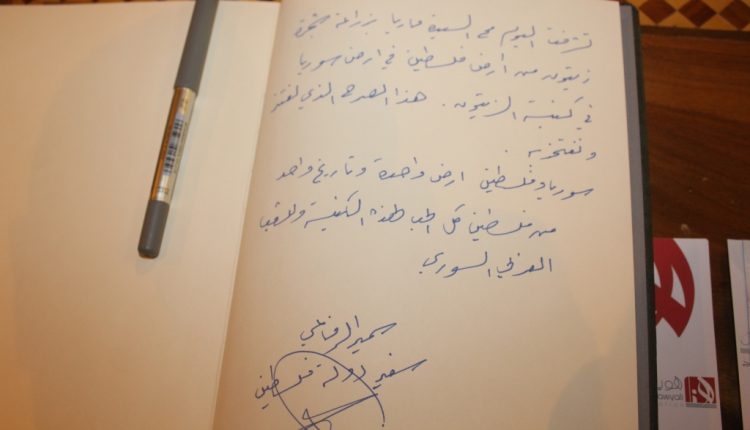 تشرفت اليوم مع السيدة ماريا بزراعة شجرة
زيتون من أرض فلسطين في أرض سوريا
في كنيسة الزيتون . هذا الصرح الذي نعتز
ونفتخر به .
سوريا وفلسطين ارض واحدة وتاريخ واحد
من فلسطين كل الحب لهذه الكنيسة وللشعب
العربي السوري
سمير الرفاعي
سفير دولة فلسطين
هويتي